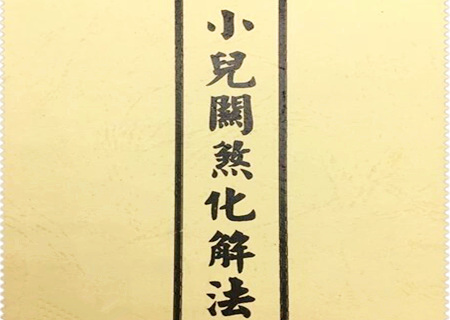 小兒關煞化解法